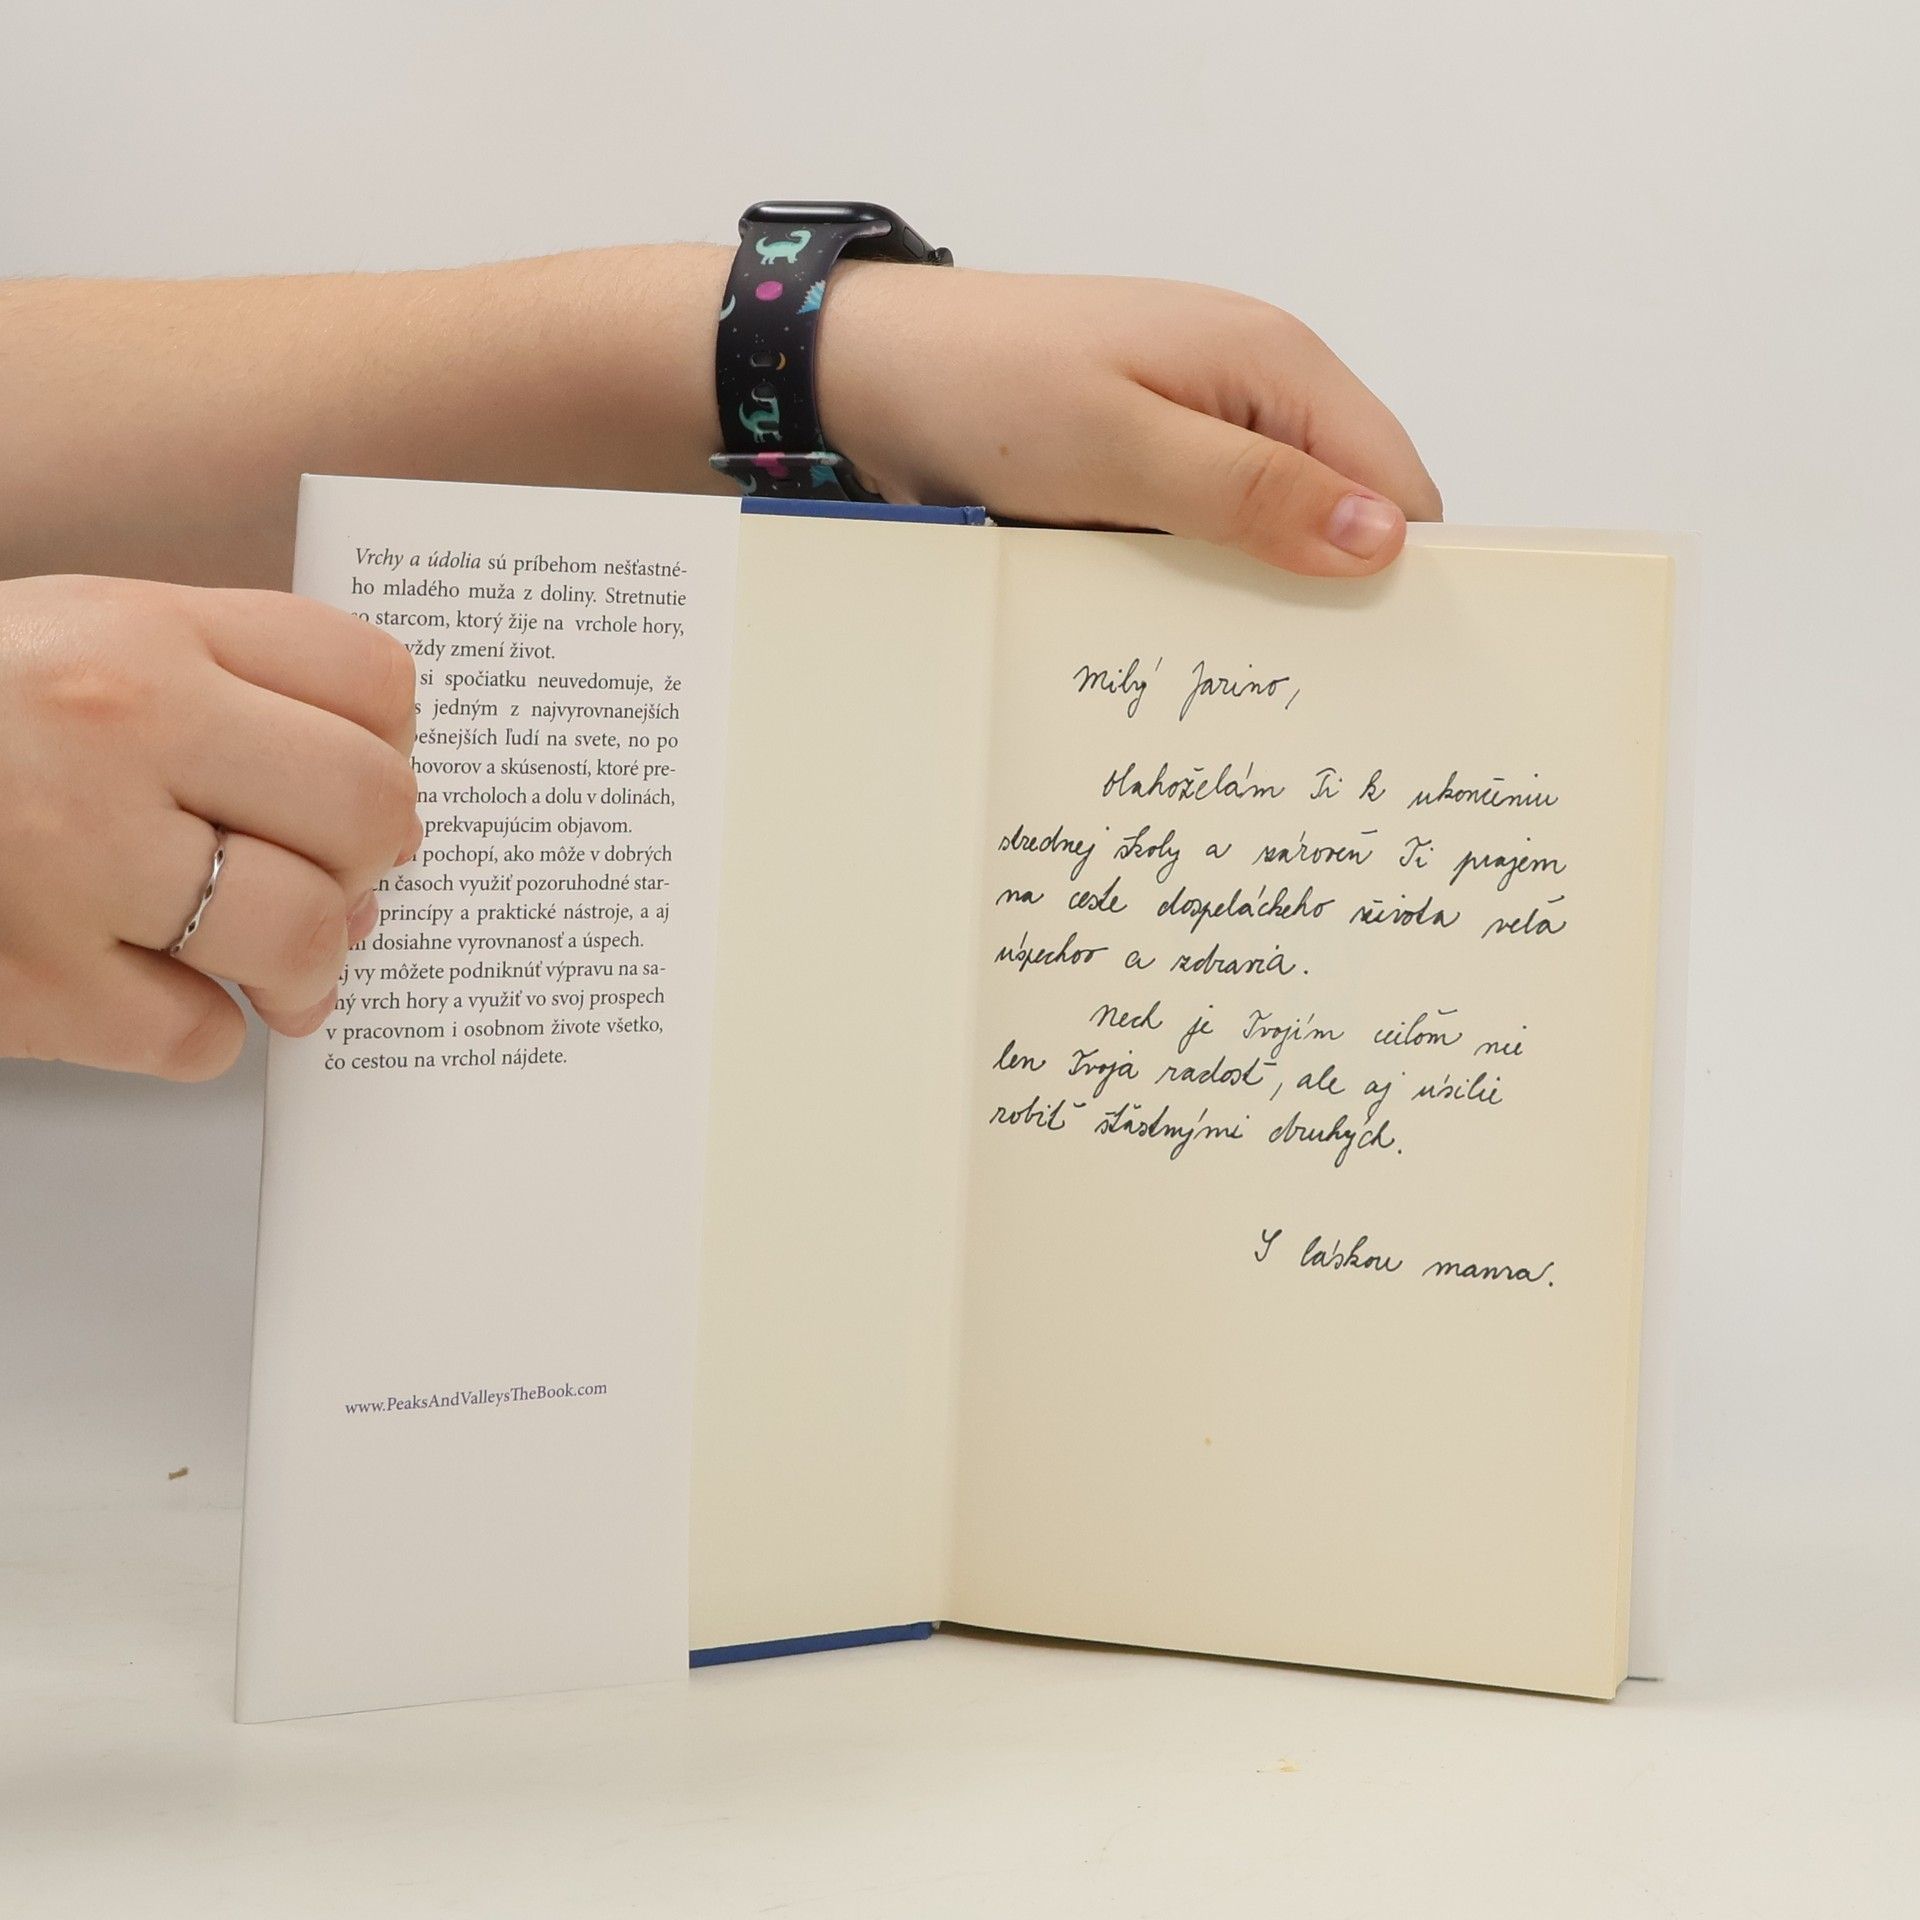 Vrchy a údolia sú príbehom nešťastné-
ho mladého muža z doliny. Stretnutie
starcom, ktorý žije na vrchole hory,
vždy zmení život.
si spočiatku neuvedomuje, že
jedným z najvyrovnanejších
ľudí na svete, no po
a skúseností, ktoré pre-
na vrcholoch a dolu v dolinách,
prekvapujúcim objavom.
pochopí, ako môže v dobrých
časoch využiť pozoruhodné star-
princípy a praktické nástroje, a aj
dosiahne vyrovnanosť a úspech.
vy môžete podniknúť výpravu na sa-
vrch hory a využiť vo svoj prospech
v pracovnom i osobnom živote všetko,
čo cestou na vrchol nájdete.
www.PeaksAndValleysTheBook.com
Milý Jarino,
blahoželám Ti k ukončeniu
strednej školy a zároveň Ti prajem
na ceste dospeláckeho života veľa
úspechov a zdravia.
Nech je Tvojím cieľom nie
len Tvoja radosť, ale aj úsilie
robiť šťastnými druhých.
S láskou mama.